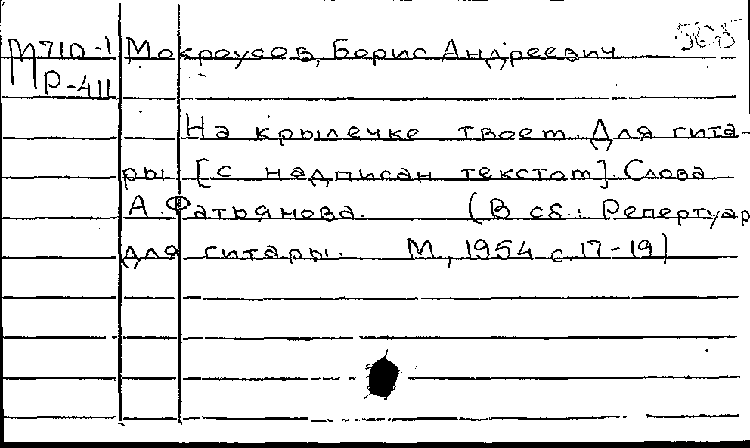 М710-1 Мокроусов, Борис Андреевич 565
Р-411
На крылечке твоем. Для гита-
ры [с надписан текстом]. Слова
А. Фатьянова. (В сб.: Репертуар
для гитары. М., 1954 с. 17-19)